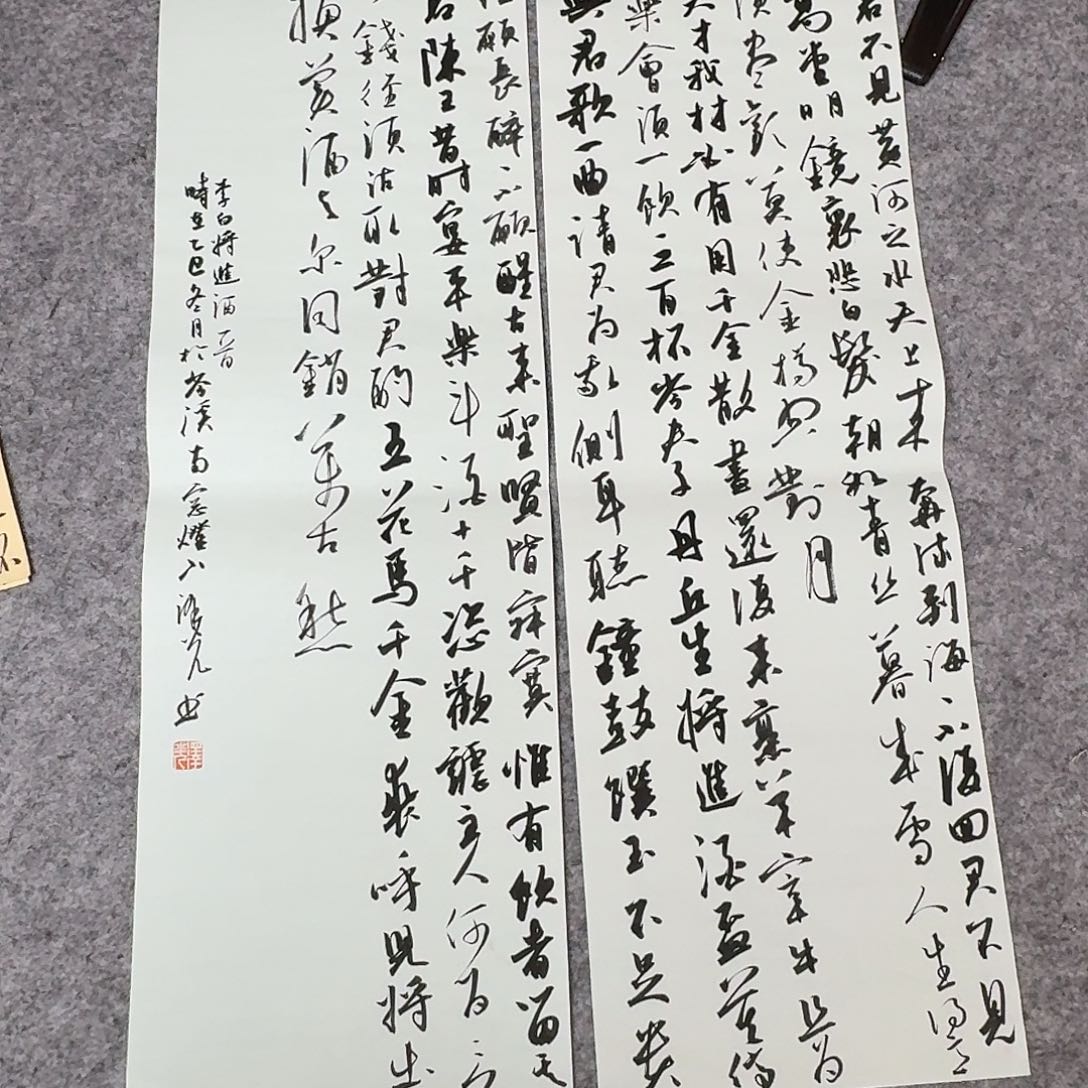 君不見黃河之水天上來奔流到海〻不復回君不見
高堂明鏡裏悲白髮朝如青絲暮成雪人生得意
須盡歡莫使金樽空對月
天才我材必有用千金散盡還復來烹羊宰牛且為
樂會須一飲三百杯岑夫子丹丘生將進酒君莫停
與君歌一曲請君為我側耳聽鐘鼓饌玉不足貴
願長醉〻不願醒古來聖賢皆寂寞惟有飲者留其
名陳王昔時宴平樂斗酒十千恣歡謔主人何為言
錢徑須沽取對君酌五花馬千金裘呼兒將出
換美酒與爾同銷萬古愁
李白將進酒一首
時在乙巳冬月於岑溪南窗燈下